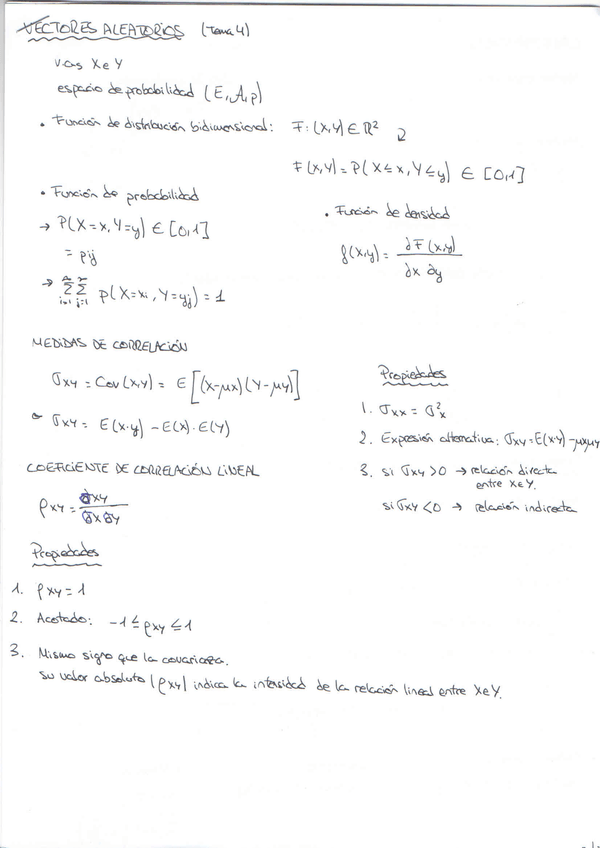 VECTORES ALEATORIOS (Tema 4)
v.as X e Y
espacio de probabilidad (E, A, p)
• Función de distribución bidimensional: F: (X,Y) ∈ ℝ²
F(x,y) = P(X ≤ x, Y ≤ y) ∈ [0,1]
• Función de probabilidad
→ P(X=x, Y=y) ∈ [0,1]
= pij
→ Σ Σ p(X=xi, Y=yj) = 1
i=1 j=1
• Función de densidad
f(x,y) = ∂F(x,y) / ∂x ∂y
MEDIDAS DE CORRELACIÓN
σxy = Cov(x,y) = E[(X-μx)(Y-μy)]
σxy = E(x·y) - E(x)·E(y)
Propiedades
1. σxx = σ²x
2. Expresión alternativa: σxy = E(x·y) - μxμy
3. si σxy > 0 → relación directa
entre X e Y.
si σxy < 0 → relación indirecta
COEFICIENTE DE CORRELACIÓN LINEAL
ρxy = σxy / σx σy
Propiedades
1. ρxy = 1
2. Acotado: -1 ≤ ρxy ≤ 1
3. Mismo signo que la covarianza.
Su valor absoluto |ρxy| indica la intensidad de la relación lineal entre X e Y.